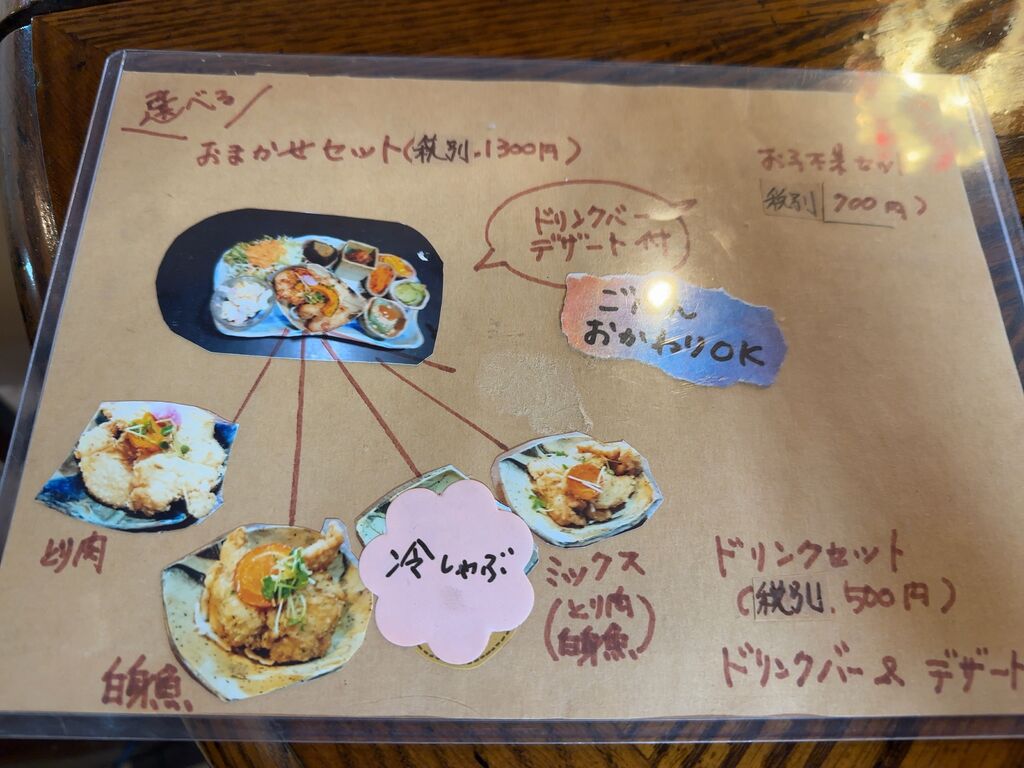 選べる
おまかせセット(税別.1300円)
お子不果セット
税別 700円)
ドリンクバー
デザート付
おかわりOK
とり肉
白身魚
冷しゃぶ
ミックス
(とり肉
白身魚)
ドリンクセット
(税別.500円)
ドリンクバー & デザート